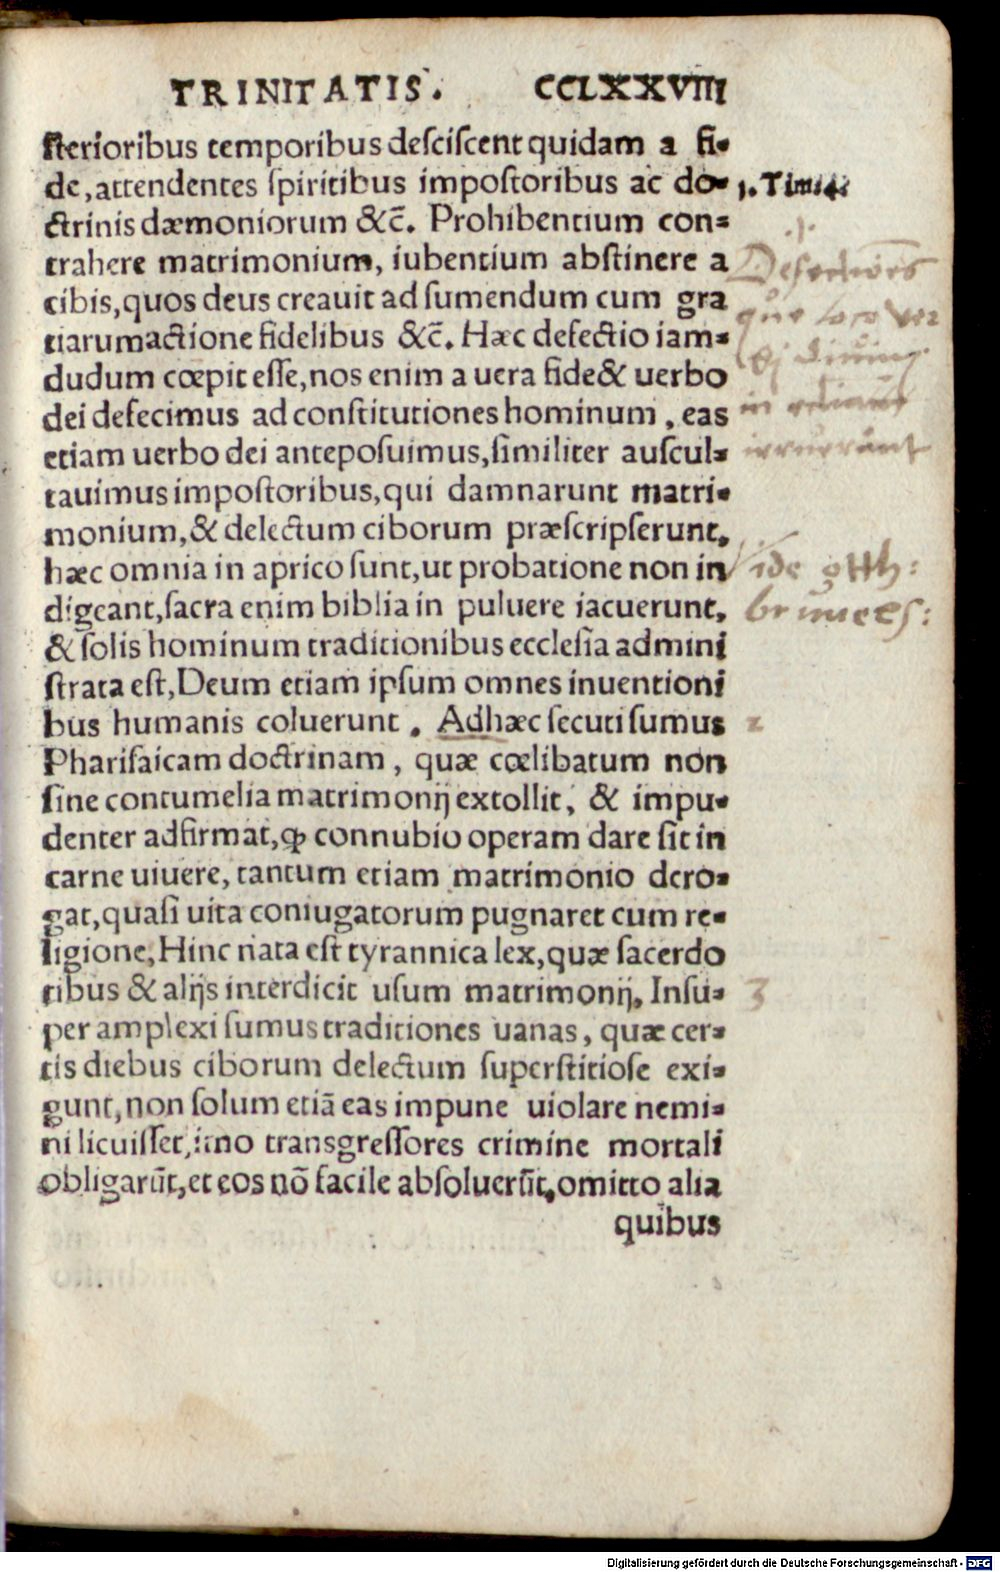 TRINITATIS. CCLXXVIII
sterioribus temporibus desciscent quidam a fi-
de, attendentes spiritibus impostoribus ac do- 1. Tim. 4.
ctrinis dæmoniorum &c̄. Prohibentium con-
trahere matrimonium, iubentium abstinere a
cibis, quos deus creauit ad sumendum cum gra
tiarumactione fidelibus &c̄. Hæc defectio iam-
dudum cœpit esse, nos enim a uera fide & uerbo
dei defecimus ad constitutiones hominum, eas
etiam uerbo dei anteposuimus, similiter auscul-
tauimus impostoribus, qui damnarunt matri-
monium, & delectum ciborum præscripserunt,
hæc omnia in aprico sunt, ut probatione non in
digeant, sacra enim biblia in puluere iacuerunt,
& solis hominum traditionibus ecclesia admini
strata est, Deum etiam ipsum omnes inuentioni
bus humanis coluerunt. Adhæc secuti sumus
Pharisaicam doctrinam, quæ cœlibatum non
sine contumelia matrimonij extollit, & impu-
denter adfirmat, ꝙ connubio operam dare sit in
carne uiuere, tantum etiam matrimonio dero-
gat, quasi uita coniugatorum pugnaret cum re-
ligione, Hinc nata est tyrannica lex, quæ sacerdo
tibus & alijs interdicit usum matrimonij. Insu-
per amplexi sumus traditiones uanas, quæ cer-
tis diebus ciborum delectum superstitiose exi-
gunt, non solum etiā eas impune uiolare nemi-
ni licuisset, imo transgressores crimine mortali
obligarūt, et eos nō facile absoluerūt, omitto alia
quibus
.1.
que loco ver
in
irruerunt
Vide
2
3
Digitalisierung gefördert durch die Deutsche Forschungsgemeinschaft - DFG